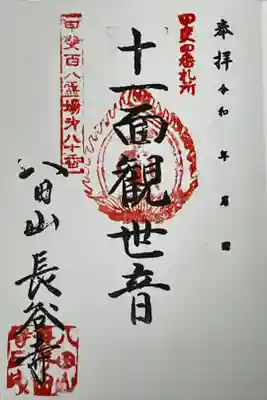 奉拝 令和 年 月 日
甲斐四番札所
十一面観世音
甲斐百八霊場第八十番
八田山 長谷寺